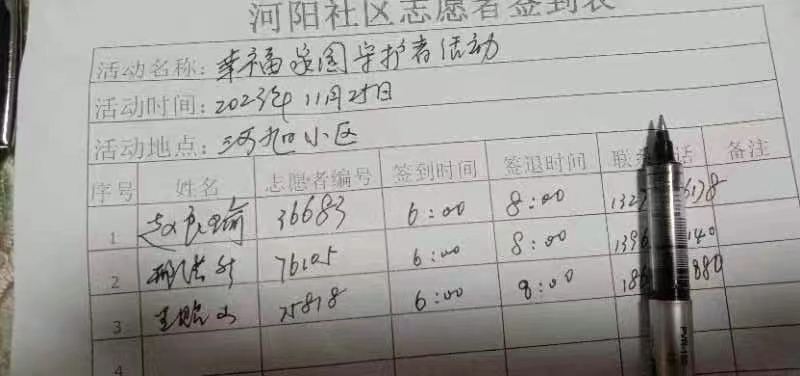 河阳社区志愿者签到表
活动名称：幸福家园守护者活动
活动时间：2023年11月25日
活动地点：河阳小区
序号 姓名 志愿者编号 签到时间 签退时间 联 话 备注
1 赵良瑜 36683 6:00 8:00 132 6138
2 76105 6:00 8:00 1396 140
3 王 75818 6:00 8:00 186 880
4